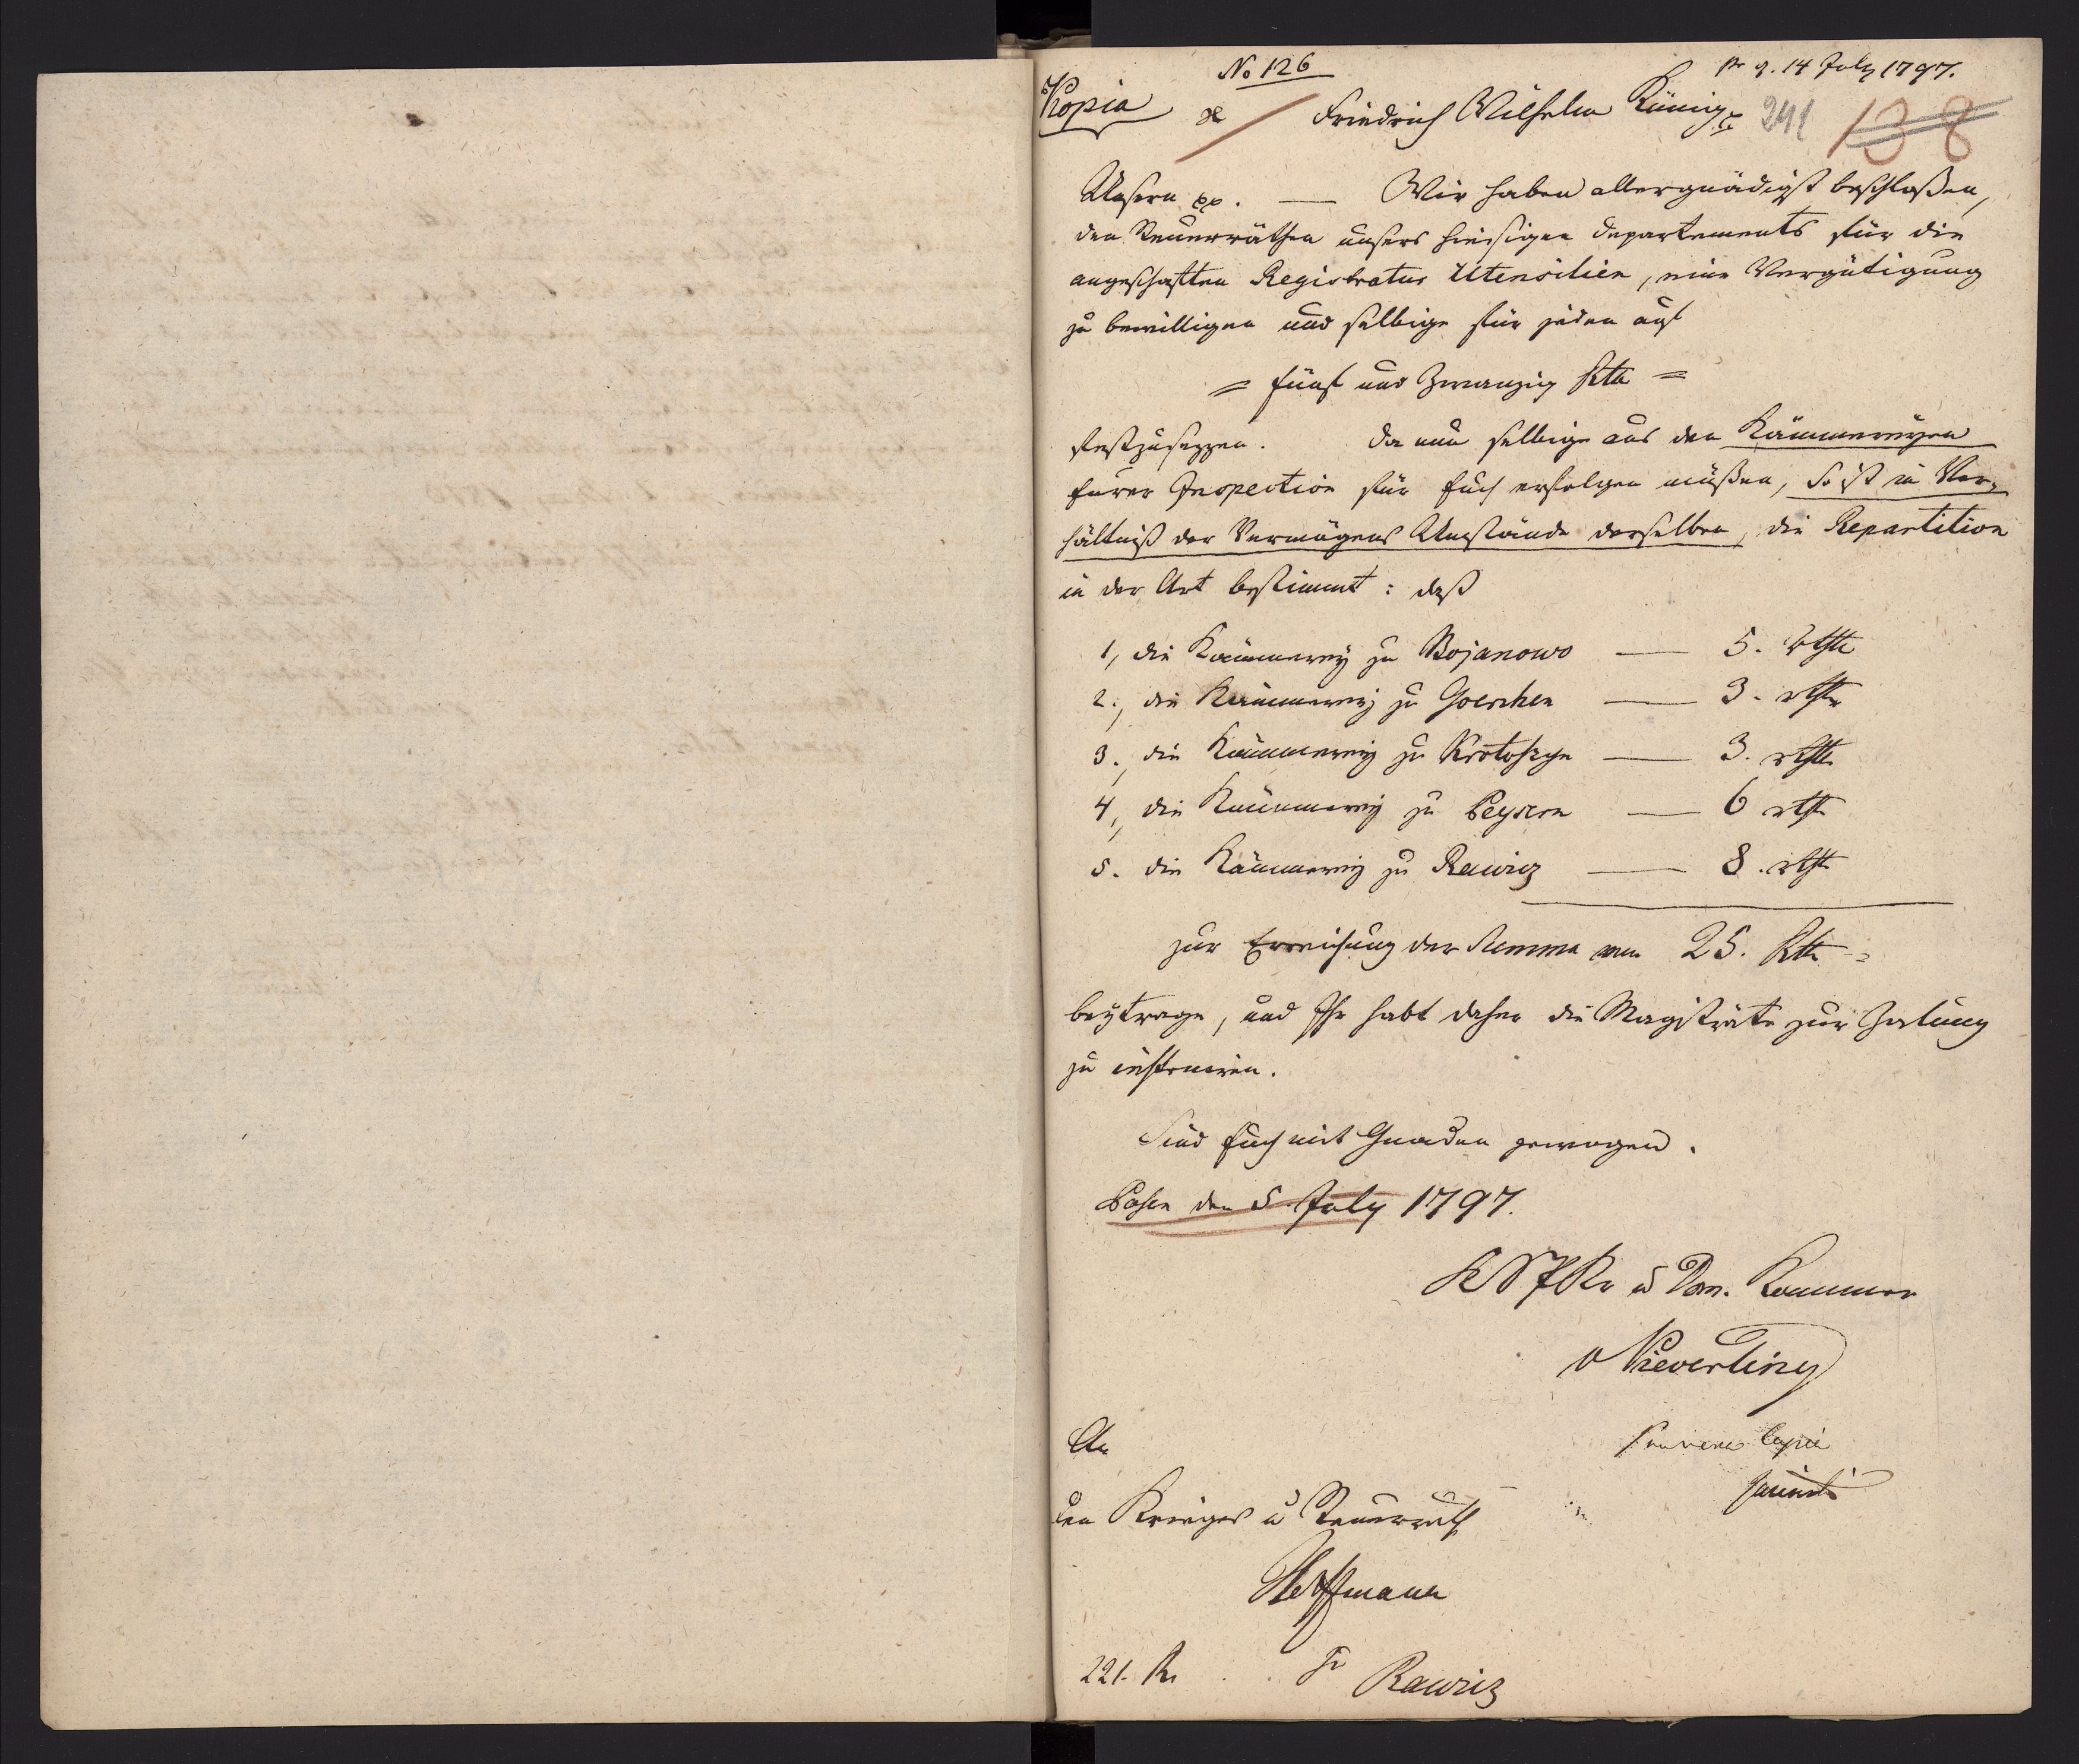 No 126
pr. d. 14 July 1797.
Kopia
Friedrich Wilhelm König pp
241
138
Unsern pp. — Wir haben allergnädigst beschloßen,
den Steuerräthen unsers hiesigen Departements für die
angeschafften Registratur Utensilien, eine Vergütigung
zu bewilligen und selbige für jeden auf
= fünf und Zwanzig Rtlr =
festzusezzen. Da nun selbige aus den Kämmereyen
Eurer Inspection für Euch erfolgen müßen, So ist in Ver-
hältniß der Vermögens Umstände derselben, die Repartition
in der Art bestimmt: daß
1, die Kämmerey zu Bojanowo — 5. rthlr
2., die Kämmerey zu Goerchen — 3. rthlr
3., die Kämmerey zu Krotoszyn — 3. rthlr
4, die Kämmerey zu Peysern — 6 rthlr
5. die Kämmerey zu Rawicz — 8. rthlr
zur Erreichung der Summa von 25. Rtlr =
beytrage, und Ihr habt daher die Magisträte zur Zalung
zu instruiren.
Sind Euch mit Gnaden gewogen.
Posen den 5 July 1797.
u Dom. Kammer
v Preverling
An
pro vera Copia
den Krieges u Steuerrath
Hoffmann
221. R.
zu Rawicz